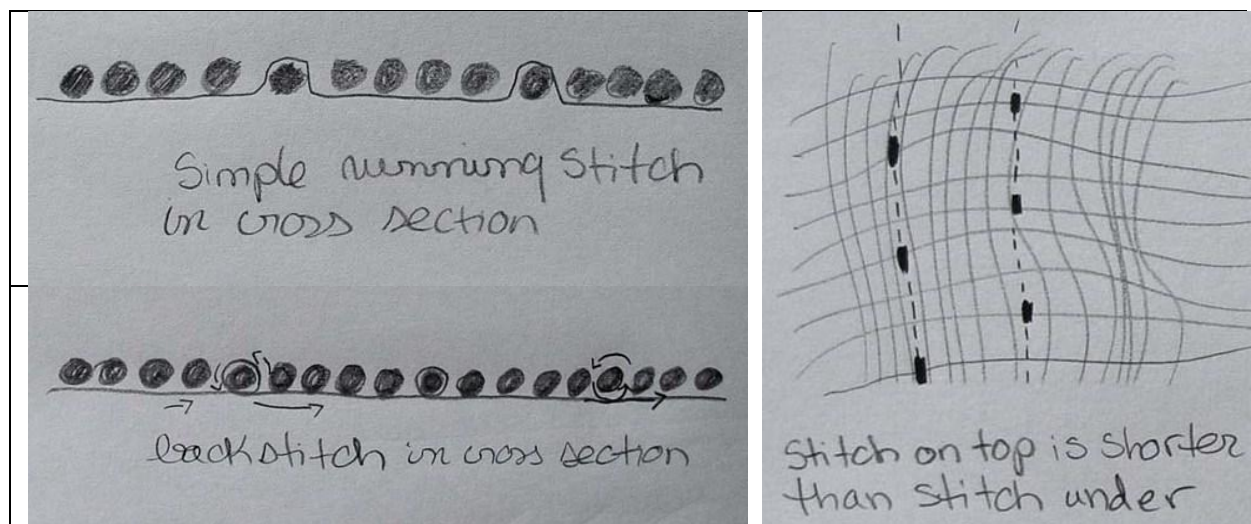 Simple running stitch
in cross section
backstitch in cross section
stitch on top is shorter
than stitch under